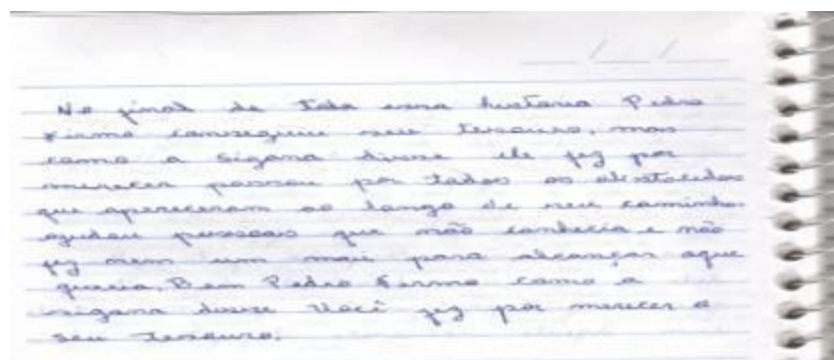 No final de toda essa historia Pedro
Firmo conseguiu seu tesouro, mas
como a sigana disse ele fez por
merecer passou por todos os obstaculos
que apareceram ao longo de seu caminho
ajudou pessoas que não conhecia e não
fez nem um mal para alcançar aque
queria. Bem Pedro Firmo como a
sigana disse você fez por merecer o
seu tesouro.